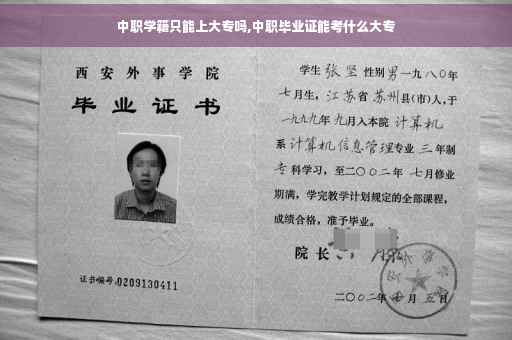 中职学籍只能上大专吗,中职毕业证能考什么大专
西安外事学院
毕业证书
证书编号:0209130411
学生 张坚 性别 男 一九八〇年
七月生, 江苏省 苏州 县(市)人,于
一九九九年 九月入本院 计算机
系 计算机信息管理 专业 三 年制
专科学习, 至二〇〇二年 七月修业
期满, 学完教学计划规定的全部课程,
成绩合格, 准予毕业。
院长
二〇〇二年 月五日